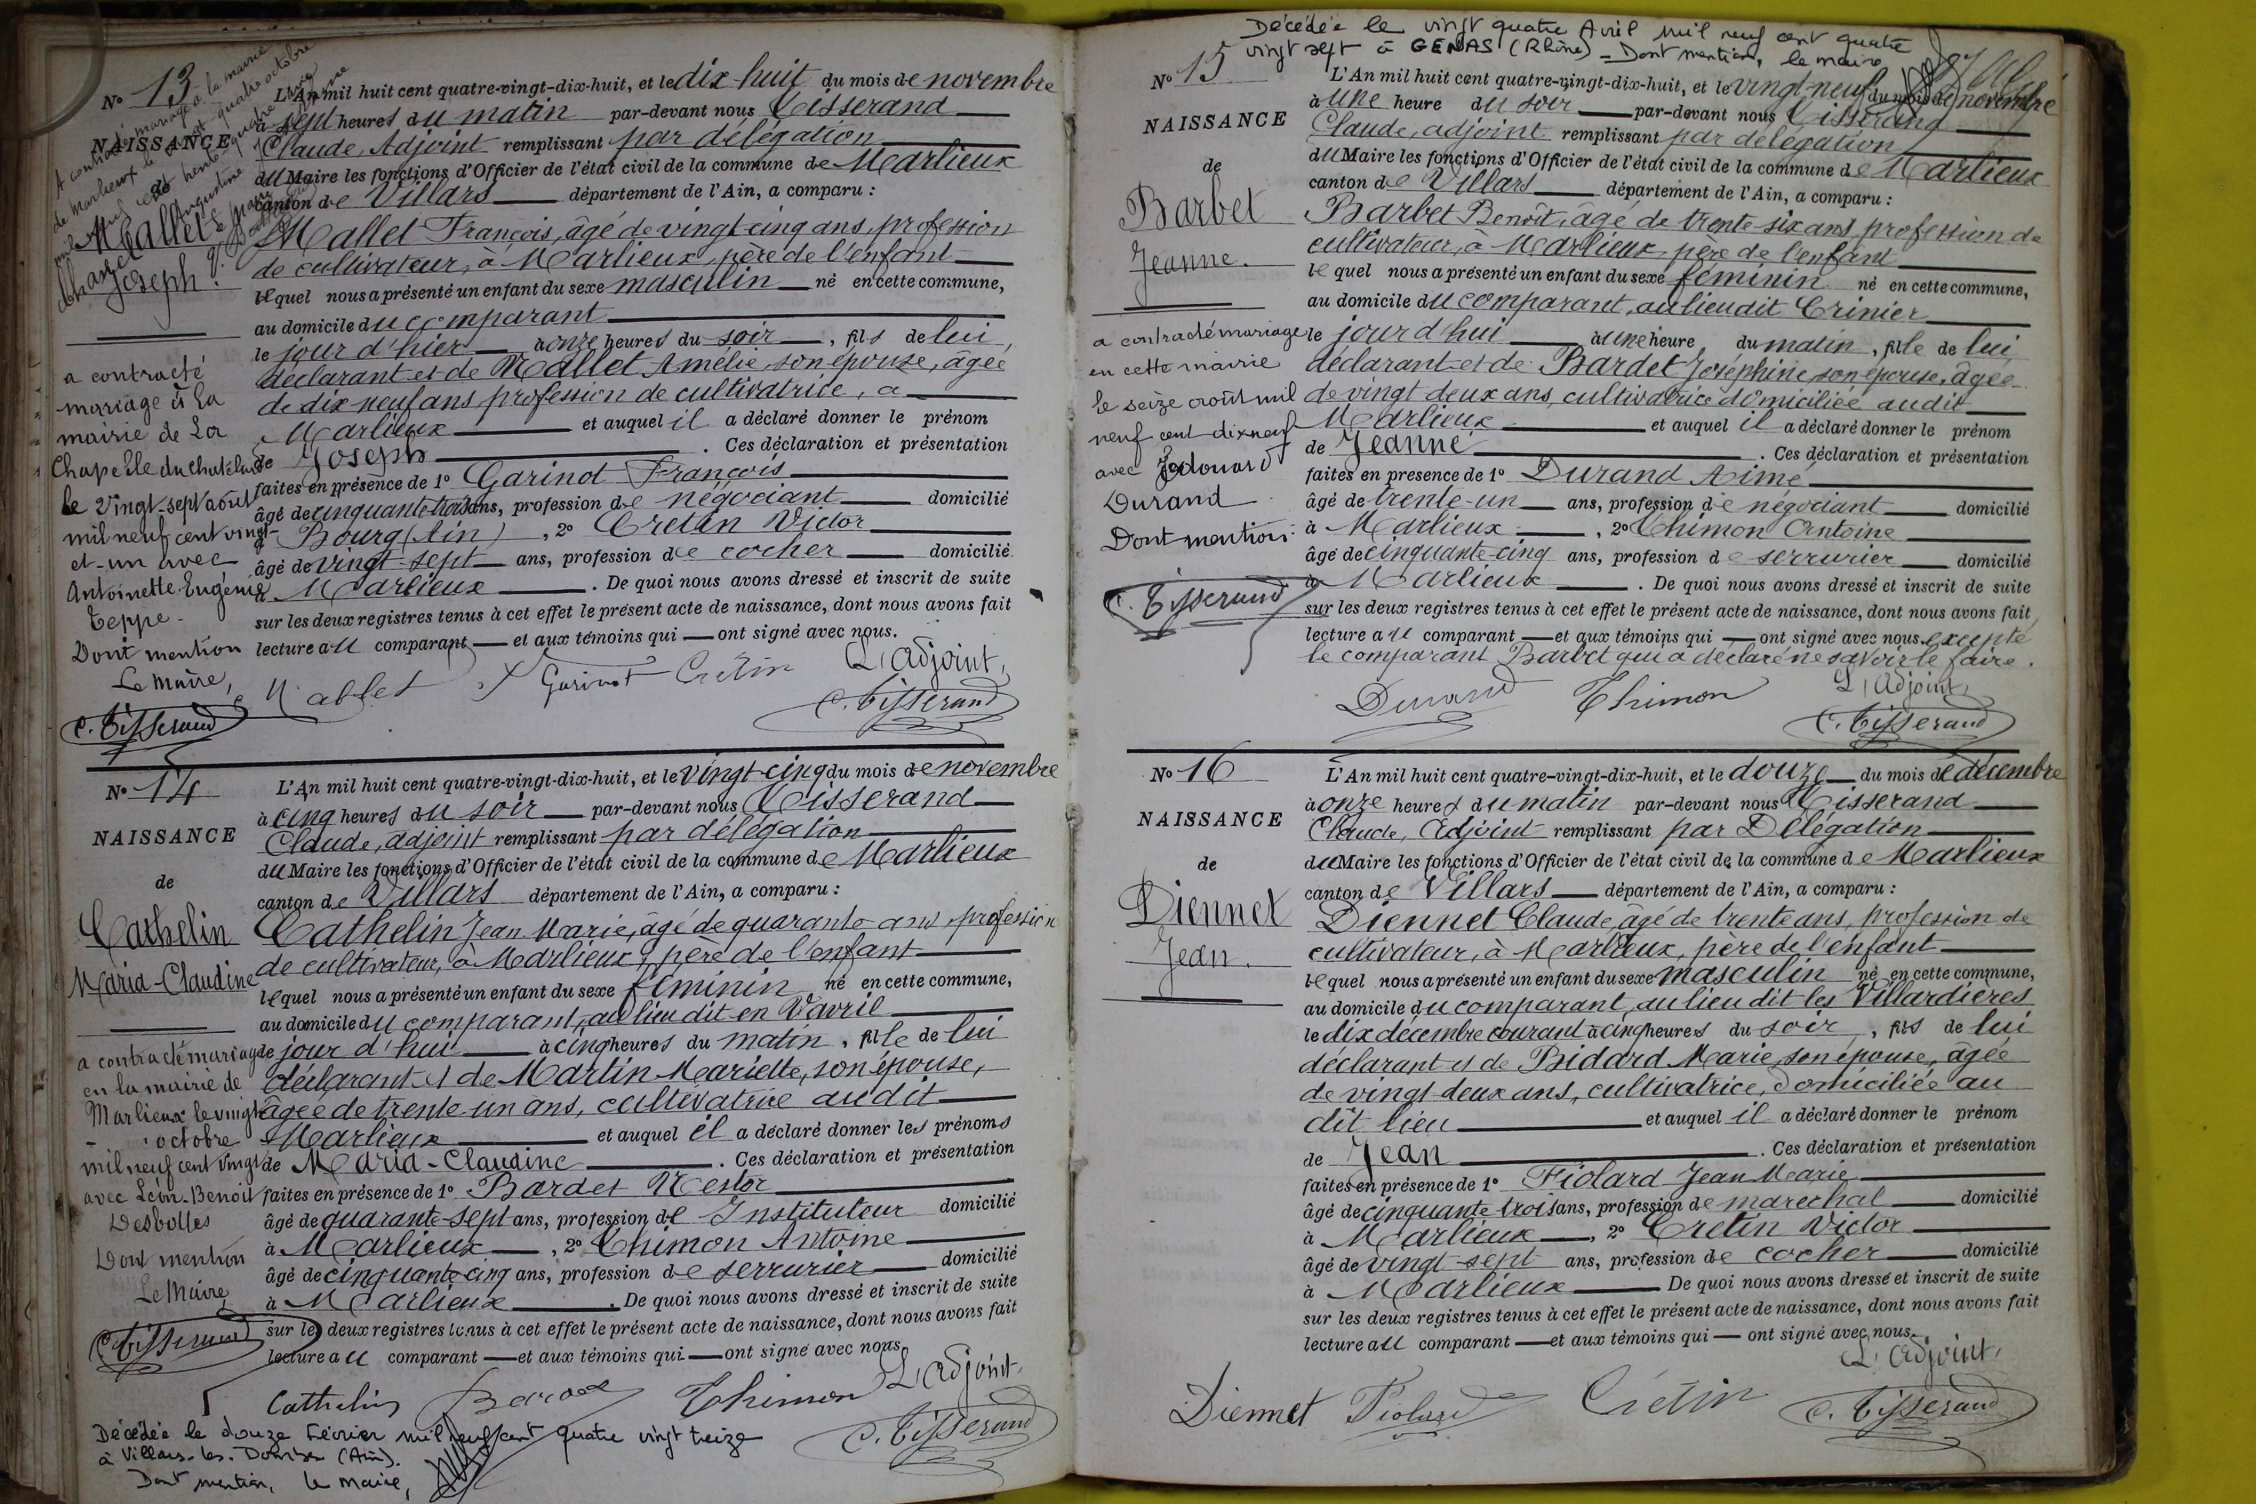 No 13
NAISSANCE
Mallet
Joseph
a contracté
mariage à la
mairie de La
Chapelle du chatelard
le vingt-sept août
mil neuf cent vingt-
et-un avec
Antoinette-Eugénie
Teppe.
Dont mention
Le Maire,
C. Tisserand
L'An mil huit cent quatre-vingt-dix-huit, et le dix-huit du mois de novembre
à sept heures du matin par-devant nous Tisserand
Claude, Adjoint remplissant par délégation
du Maire les fonctions d'Officier de l'état civil de la commune de Marlieux
canton de Villars département de l'Ain, a comparu :
Mallet François, âgé de vingt-cinq ans, profession
de cultivateur, à Marlieux, père de l'enfant
lequel nous a présenté un enfant du sexe masculin né en cette commune,
au domicile du comparant
le jour d'hier à onze heures du soir, fils de lui,
déclarant et de Mallet Amélie, son épouse, âgée
de dix neuf ans profession de cultivatrice, a
Marlieux et auquel il a déclaré donner le prénom
de Joseph. Ces déclaration et présentation
faites en présence de 1° Garinot François
âgé de cinquante-trois ans, profession de négociant domicilié
à Bourg (Ain), 2° Cretin Victor
âgé de vingt-sept ans, profession de cocher domicilié
à Marlieux. De quoi nous avons dressé et inscrit de suite
sur les deux registres tenus à cet effet le présent acte de naissance, dont nous avons fait
lecture au comparant et aux témoins qui ont signé avec nous.
Mallet Garinot Crétin L'adjoint,
C. Tisserand
No 14
NAISSANCE
de
Cathelin
Maria-Claudine
a contracté mariage
en la mairie de
Marlieux le vingt
octobre
mil neuf cent vingt
avec Léon-Benoit
Desbolles
Dont mention
Le Maire
C. Tisserand
L'An mil huit cent quatre-vingt-dix-huit, et le vingt-cinq du mois de novembre
à cinq heures du soir par-devant nous Tisserand
Claude, adjoint remplissant par délégation
du Maire les fonctions d'Officier de l'état civil de la commune de Marlieux
canton de Villars département de l'Ain, a comparu :
Cathelin Jean Marie, âgé de quarante ans, profession
de cultivateur, à Marlieux, père de l'enfant
lequel nous a présenté un enfant du sexe féminin né en cette commune,
au domicile du comparant, au lieu dit en Vavril
le jour d'hui à cinq heures du matin, fille de lui
déclarant et de Martin Mariette, son épouse,
âgée de trente-un ans, cultivatrice au dit
Marlieux et auquel il a déclaré donner les prénoms
de Maria-Claudine. Ces déclaration et présentation
faites en présence de 1° Bardet Nestor
âgé de quarante-sept ans, profession de Instituteur domicilié
à Marlieux, 2° Thimon Antoine
âgé de cinquante-cinq ans, profession de serrurier domicilié
à Marlieux. De quoi nous avons dressé et inscrit de suite
sur les deux registres tenus à cet effet le présent acte de naissance, dont nous avons fait
lecture au comparant et aux témoins qui ont signé avec nous
Cathelin Bardet Thimon L'adjoint,
C. Tisserand
Décédée le douze Février mil neuf cent quatre vingt treize
à Villars-les-Dombes (Ain).
Dont mention, le maire,
Décédée le vingt quatre Avril mil neuf cent quatre
vingt sept à GENAS (Rhône) - Dont mention, le maire
No 15
NAISSANCE
de
Barbet
Jeanne.
a contracté mariage
en cette mairie
le seize août mil
neuf cent dix neuf
avec Edouard
Durand
Dont mention:
C. Tisserand
L'An mil huit cent quatre-vingt-dix-huit, et le vingt-neuf du mois de novembre
à une heure du soir par-devant nous Tisserand
Claude, adjoint remplissant par délégation
du Maire les fonctions d'Officier de l'état civil de la commune de Marlieux
canton de Villars département de l'Ain, a comparu :
Barbet Benoît, âgé de trente-six ans, profession de
cultivateur, à Marlieux, père de l'enfant
lequel nous a présenté un enfant du sexe féminin né en cette commune,
au domicile du comparant, au lieu dit Crinier
le jour d'hui à une heure du matin, fille de lui
déclarant et de Bardet Joséphine, son épouse, âgée
de vingt deux ans, cultivatrice domiciliée audit
Marlieux et auquel il a déclaré donner le prénom
de Jeanne. Ces déclaration et présentation
faites en presence de 1° Durand Aimé
âgé de trente-un ans, profession de négociant domicilié
à Marlieux, 2° Thimon Antoine
âgé de cinquante-cinq ans, profession de serrurier domicilié
à Marlieux. De quoi nous avons dressé et inscrit de suite
sur les deux registres tenus à cet effet le présent acte de naissance, dont nous avons fait
lecture au comparant et aux témoins qui ont signé avec nous excepté
le comparant Barbet qui a déclaré ne savoir le faire.
Durand Thimon L'adjoint,
C. Tisserand
No 16
NAISSANCE
de
Diennet
Jean.
L'An mil huit cent quatre-vingt-dix-huit, et le douze du mois de décembre
à onze heures du matin par-devant nous Tisserand
Claude, Adjoint remplissant par Délégation
du Maire les fonctions d'Officier de l'état civil de la commune de Marlieux
canton de Villars département de l'Ain, a comparu :
Diennet Claude, âgé de trente ans, profession de
cultivateur, à Marlieux, père de l'enfant
lequel nous a présenté un enfant du sexe masculin né en cette commune,
au domicile du comparant, au lieu dit les Villardières
le dix décembre courant à cinq heures du soir, fils de lui
déclarant et de Bidard Marie, son épouse, âgée
de vingt-deux ans, cultivatrice, domiciliée au
dit lieu et auquel il a déclaré donner le prénom
de Jean. Ces déclaration et présentation
faites en présence de 1° Fiolard Jean Marie
âgé de cinquante-trois ans, profession de marechal domicilié
à Marlieux, 2° Cretin Victor
âgé de vingt-sept ans, profession de cocher domicilié
à Marlieux De quoi nous avons dressé et inscrit de suite
sur les deux registres tenus à cet effet le présent acte de naissance, dont nous avons fait
lecture au comparant et aux témoins qui ont signé avec nous.
L'Adjoint,
Diennet Fiolard Crétin C. Tisserand